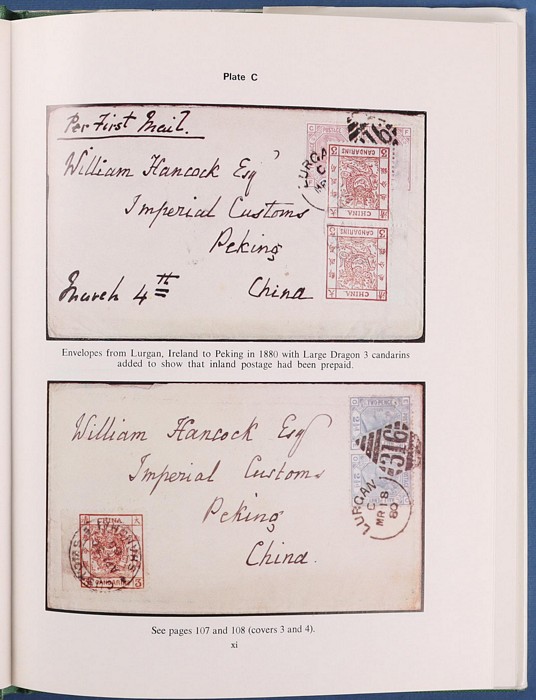 Plate C
Per First Mail.
William Hancock Esqr
Imperial Customs
Peking
China
March 4th
LURGAN
C
MR
316
CANDARINS
3
CHINA
CANDARINS
3
CHINA
Envelopes from Lurgan, Ireland to Peking in 1880 with Large Dragon 3 candarins
added to show that inland postage had been prepaid.
William Hancock Esq
Imperial Customs
Peking
China.
TWO PENCE
2½
2½
316
LURGAN
C
MR 18
80
CHINA
3
CANDARINS
See pages 107 and 108 (covers 3 and 4).
xi